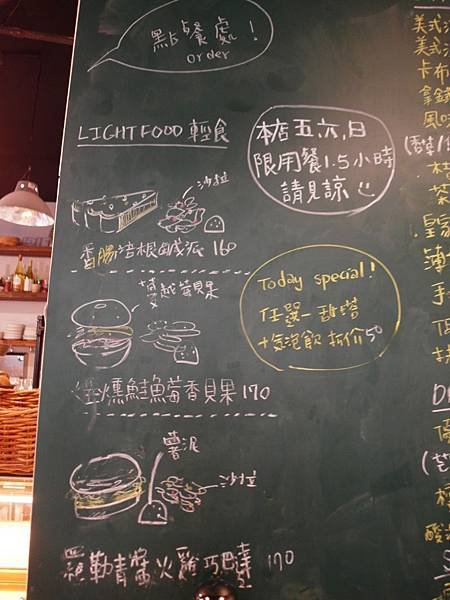 點餐處！
order
LIGHT FOOD 輕食
本店五六,日
限用餐1.5小時
請見諒
沙拉
香腸培根鹹派 160
Today special!
任選一甜塔
+氣泡飲 折价50
蔓越莓貝果
煙燻鮭魚莓香貝果 170
薯泥
沙拉
羅勒青醬火雞巧巴達 170
美式
美式
卡布
拿鐵
風味